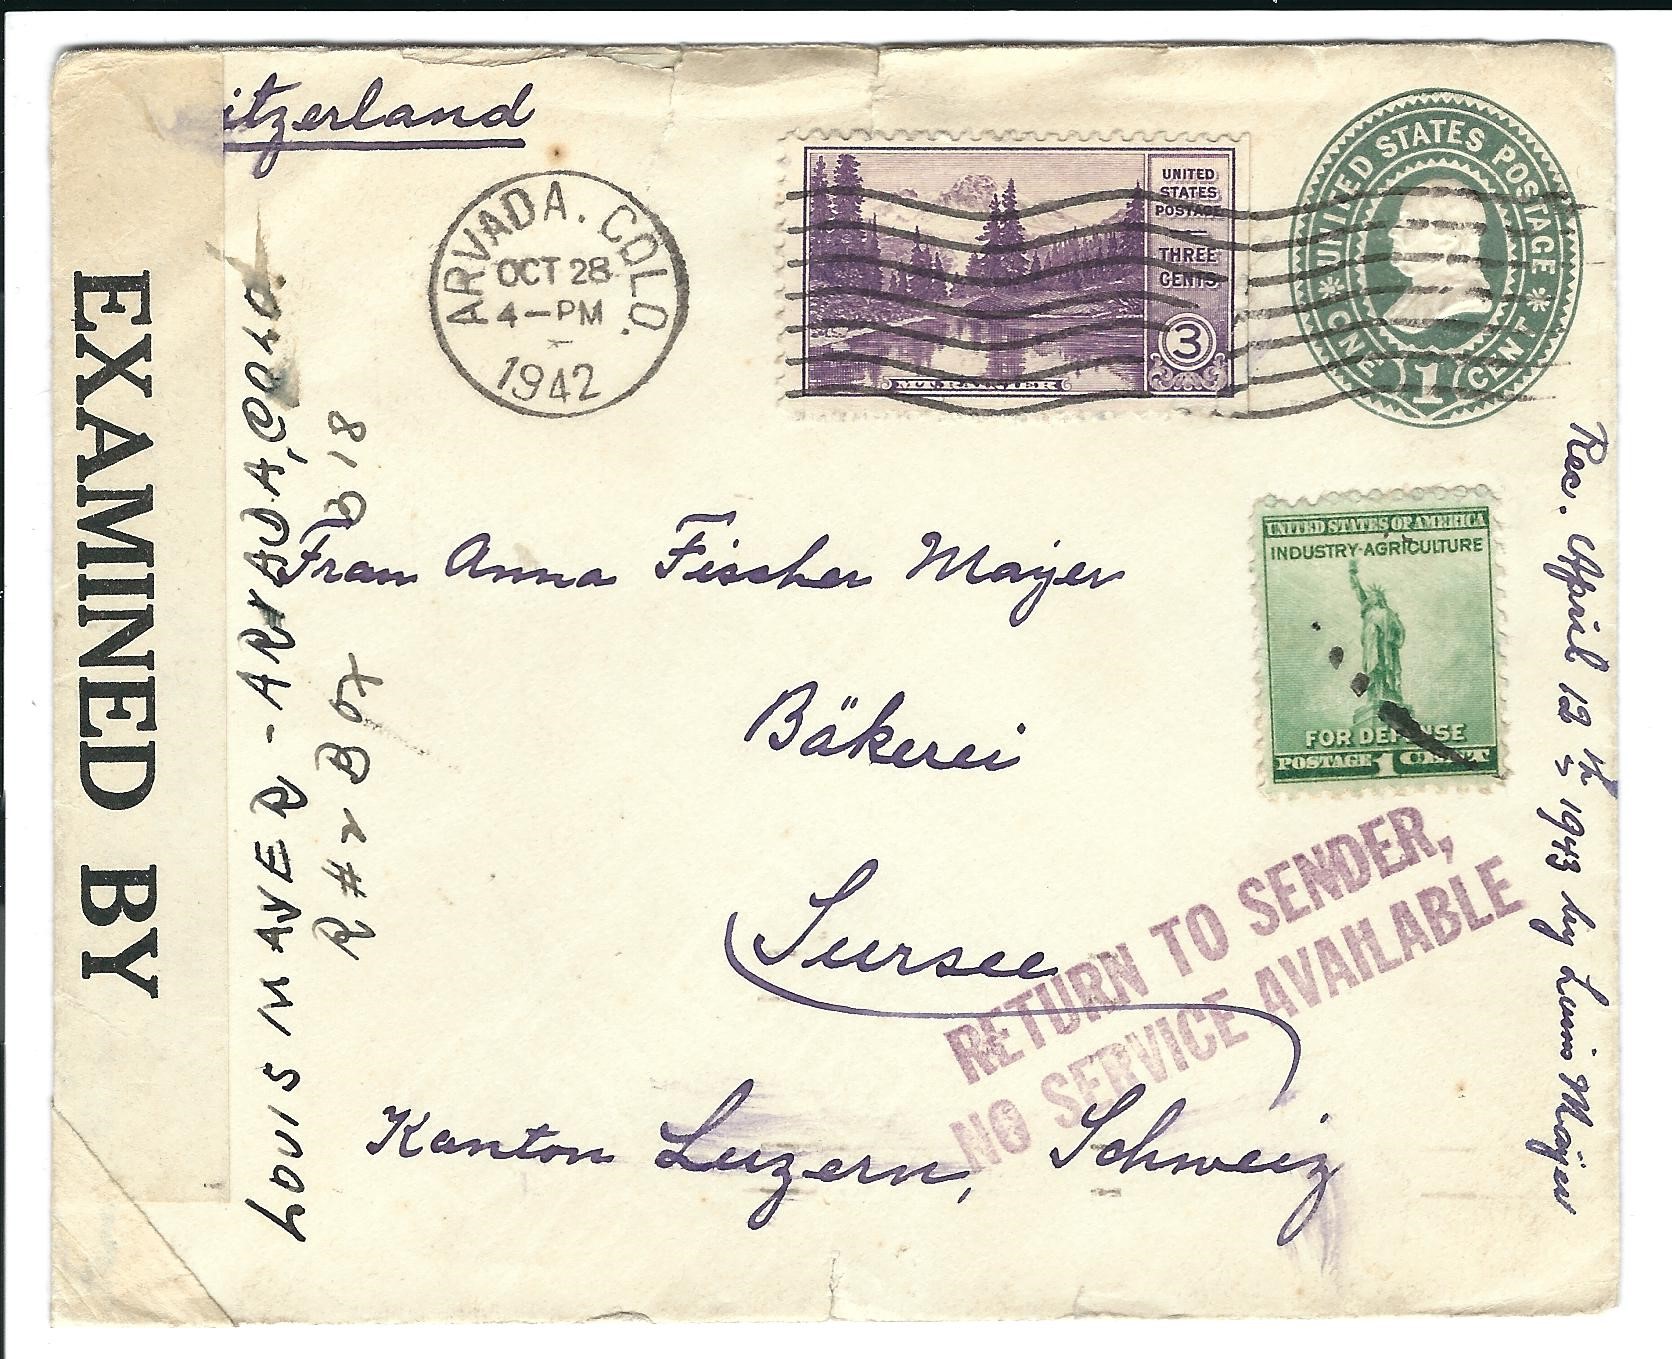 itzerland
ARVADA. COLO.
OCT 28
4-PM
1942
UNITED
STATES
POSTAGE
THREE
CENTS
3
MT. RAINIER
UNITED STATES POSTAGE
ONE 1 CENT
EXAMINED BY
LOUIS MAYER - ARVADA, COLO.
R#2 Box B18
Frau Anna Fischer Mayer
Bäkerei
Sursee
Kanton Luzern, Schweiz
UNITED STATES OF AMERICA
INDUSTRY-AGRICULTURE
FOR DEFENSE
POSTAGE 1 CENT
RETURN TO SENDER,
NO SERVICE AVAILABLE
Rec. April 12th 1943 by Louis Mayer